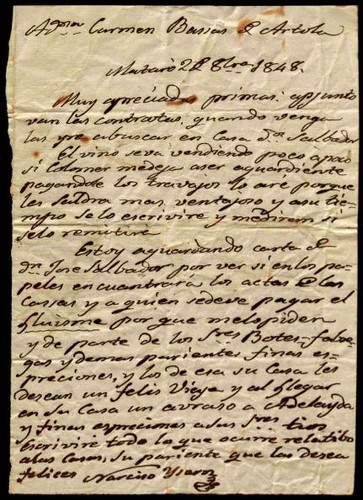 Carmen Bassas de Artola
Mataró 2 8bre 1848.
Muy apreciadas primas: adjunto
van las contratas, quando venga
las yre abuscar en Casa dn. Salbador
El vino seva vendiendo poco apoco
si Colomer medeja aser aguardiente
pagandole los travajos lo are porque
les saldra mas ventajoso y asu tie-
mpo selo escrivire y mediran si
selo remitire
Estoy aguardando carta de
dn. Jose Salbador por ver si enlos pa-
peles encuantrara los actas de las
Casas y a quien sedeve pagar el
lluisme por que melopiden
y de parte de los Sres. Botes-fabre-
gas y demas parientes finas es-
preciones, y los de esa su Casa les
desean un felis Viaje y al llegar
en su Casa un avraso a Adelayda
y finas espreciones asus Sres. tios
escrivire todo lo que ocurre relatibo
alas casas, Su pariente que las desea
felices Narciso